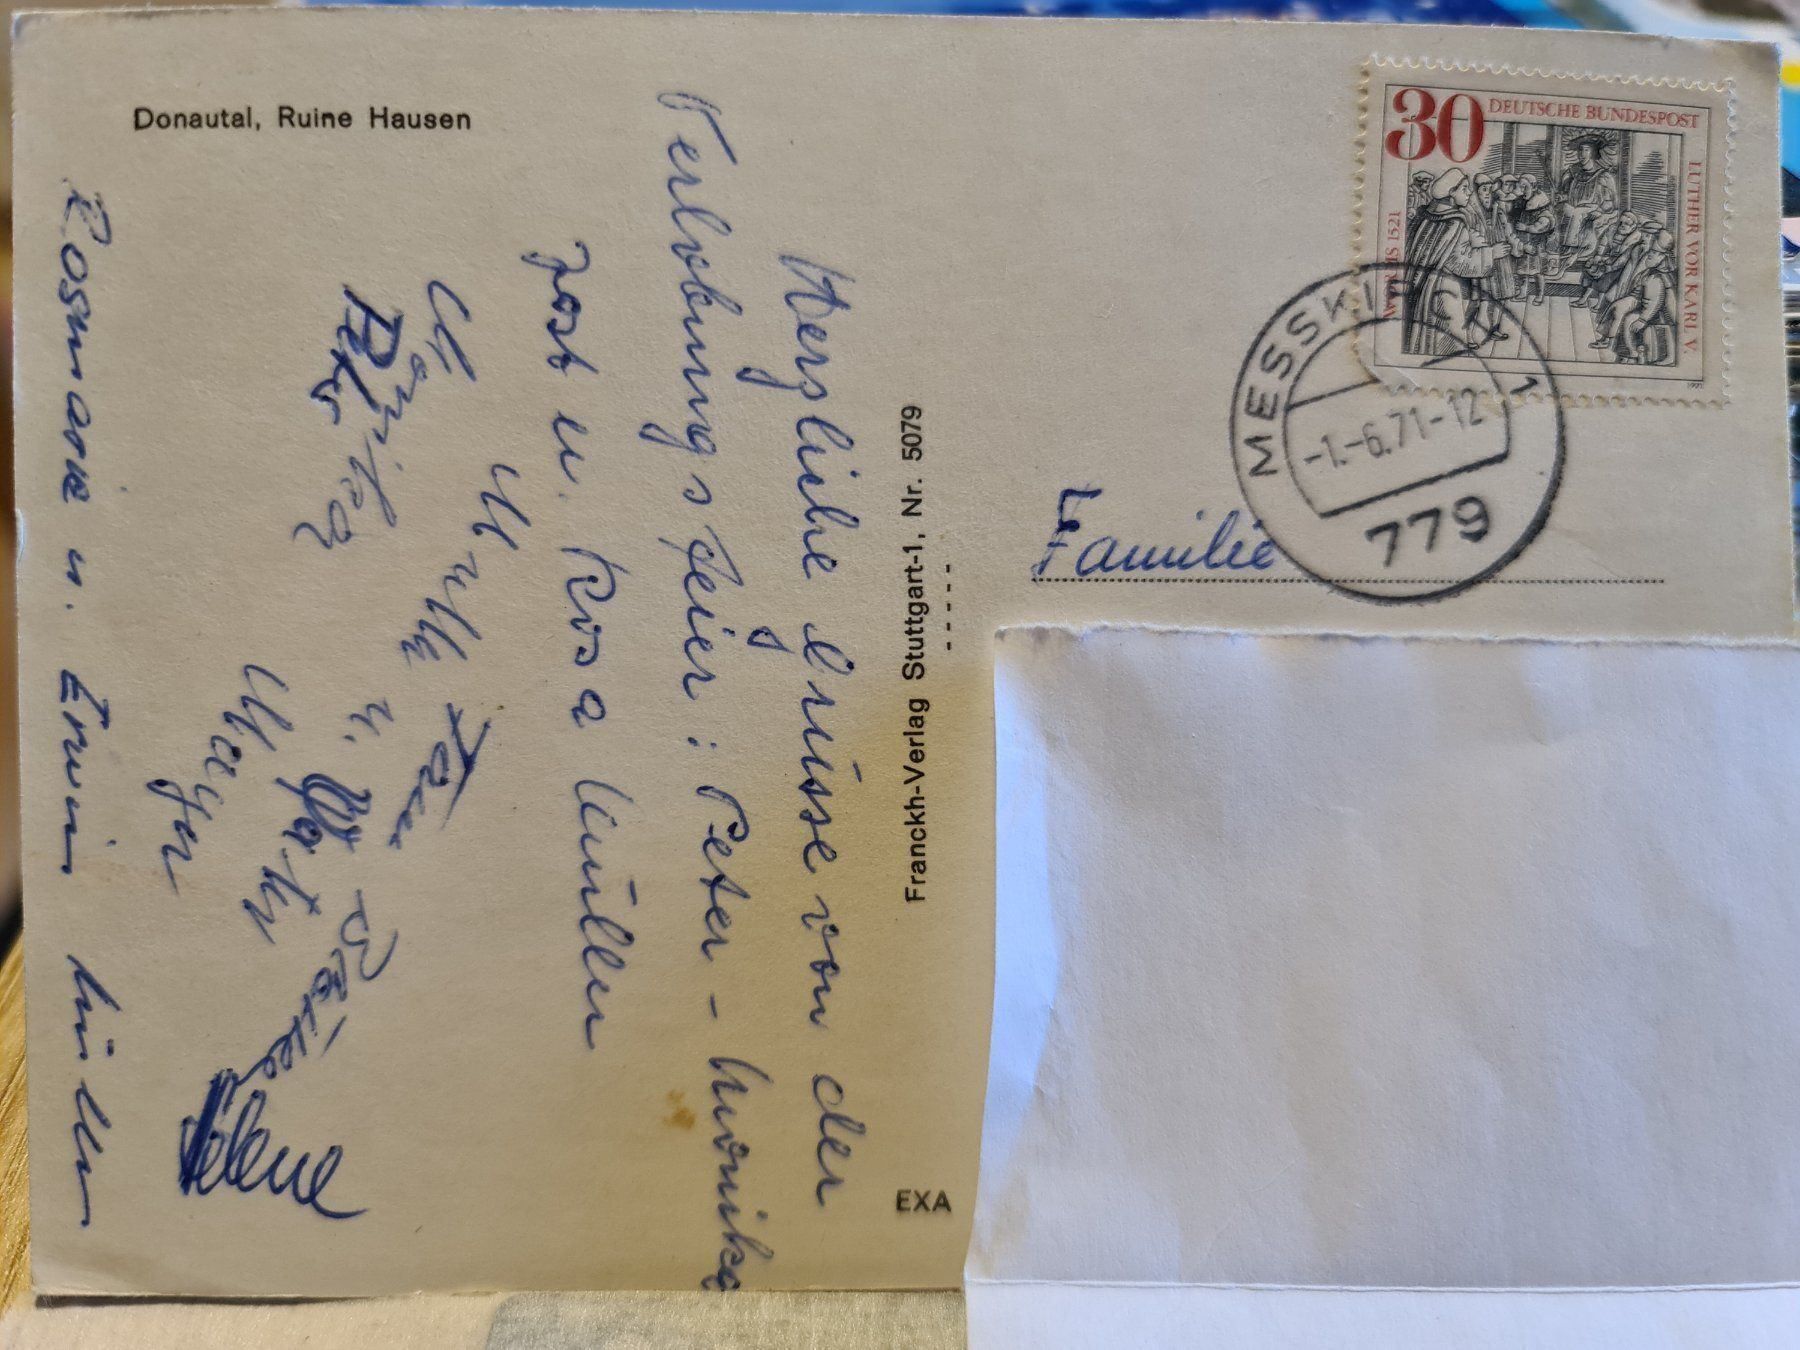 Donautal, Ruine Hausen
Herzliche Grüsse von der
Verlobungsfeier: Peter - Monika
Jost u. Rosa Müller
Monika
Peter
u.
Helene
Rosmarie u. Erwin Müller
Franckh-Verlag Stuttgart-1, Nr. 5079
EXA
30 DEUTSCHE BUNDESPOST
LUTHER VOR KARL V.
WORMS 1521
1971
MESSKIRCH 1
-1.-6.71-12
779
Familie